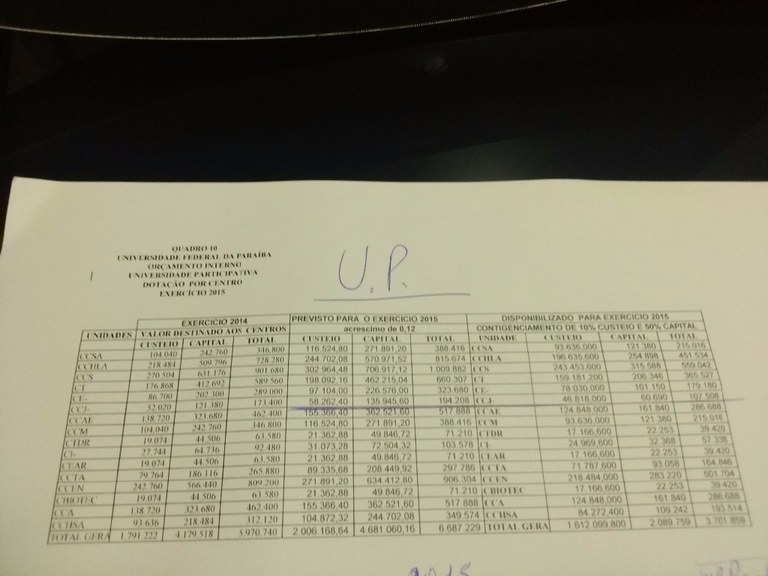 U.P.
QUADRO 10
UNIVERSIDADE FEDERAL DA PARAÍBA
ORÇAMENTO INTERNO
UNIVERSIDADE PARTICIPATIVA
DOTAÇÃO POR CENTRO
EXERCÍCIO 2015
EXERCICIO 2014 PREVISTO PARA O EXERCICIO 2015 DISPONIBILIZADO PARA EXERCICIO 2015
UNIDADES VALOR DESTINADO AOS CENTROS acrescimo de 0,12 CONTIGENCIAMENTO DE 10% CUSTEIO E 50% CAPITAL
CUSTEIO CAPITAL TOTAL CUSTEIO CAPITAL TOTAL UNIDADE CUSTEIO CAPITAL TOTAL
CCSA 104.040 242.760 346.800 116.524,80 271.891,20 388.416 CCSA 93.636,000 121.380 215.016
CCHLA 218.484 509.796 728.280 244.702,08 570.971,52 815.674 CCHLA 196.635,600 254.898 451.534
CCS 270.504 631.176 901.680 302.964,48 706.917,12 1.009.882 CCS 243.453,600 315.588 559.042
CT 176.868 412.692 589.560 198.092,16 462.215,04 660.307 CT 159.181,200 206.346 365.527
CE- 86.700 202.300 289.000 97.104,00 226.576,00 323.680 CE- 78.030,000 101.150 179.180
CCJ- 52.020 121.380 173.400 58.262,40 135.945,60 194.208 CCJ- 46.818,000 60.690 107.508
CCAE 138.720 323.680 462.400 155.366,40 362.521,60 517.888 CCAE 124.848,000 161.840 286.688
CCM 104.040 242.760 346.800 116.524,80 271.891,20 388.416 CCM 93.636,000 121.380 215.016
CTDR 19.074 44.506 63.580 21.362,88 49.846,72 71.210 CTDR 17.166,600 22.253 39.420
CI- 27.744 64.736 92.480 31.073,28 72.504,32 103.578 CI- 24.969,600 32.368 57.338
CEAR 19.074 44.506 63.580 21.362,88 49.846,72 71.210 CEAR 17.166,600 22.253 39.420
CCTA 79.764 186.116 265.880 89.335,68 208.449,92 297.786 CCTA 71.787,600 93.058 164.846
CCEN 242.760 566.440 809.200 271.891,20 634.412,80 906.304 CCEN 218.484,000 283.220 501.704
CBIOTEC 19.074 44.506 63.580 21.362,88 49.846,72 71.210 CBIOTEC 17.166,600 22.253 39.420
CCA 138.720 323.680 462.400 155.366,40 362.521,60 517.888 CCA 124.848,000 161.840 286.688
CCHSA 93.636 218.484 312.120 104.872,32 244.702,08 349.574 CCHSA 84.272,400 109.242 193.514
TOTAL GERA 1.791.222 4.179.518 5.970.740 2.006.168,64 4.681.060,16 6.687.229 TOTAL GERA 1.612.099,800 2.089.759 3.701.859
2015